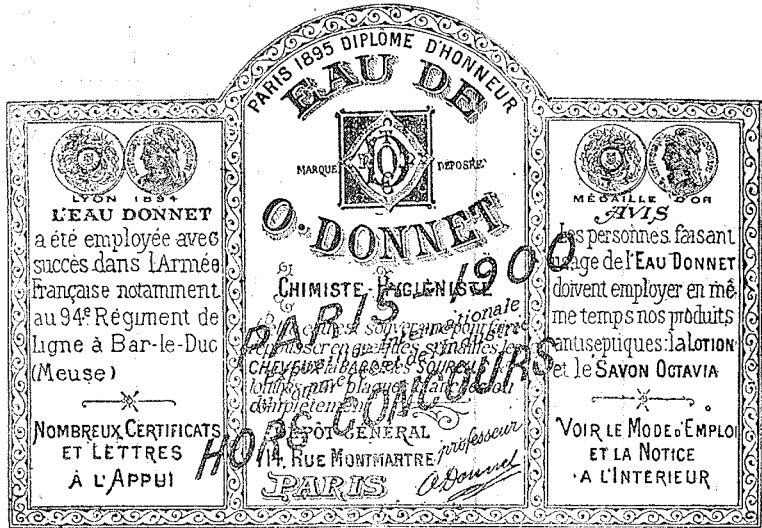 LYON 1894
L'EAU DONNET
a été employée avec
succès dans L'Armée
Française notamment
au 94e Régiment de
Ligne à Bar-le-Duc
(Meuse)
NOMBREUX CERTIFICATS
ET LETTRES
À L'APPUI
PARIS 1895 DIPLÔME D'HONNEUR
EAU DE
MARQUE DÉPOSÉE
O. DONNET
CHIMISTE-HYGIÉNISTE
CHEVEUX la BARBE les SOURCILS
DÉPÔT GÉNÉRAL
114, RUE MONTMARTRE
PARIS
PARIS-1900
internationale
HORS CONCOURS
professeur
O Donnet
MÉDAILLE D'OR
AVIS
Les personnes faisant
usage de l'EAU DONNET
doivent employer en mê-
me temps nos produits
antiseptiques: la LOTION
et le SAVON OCTAVIA
VOIR LE MODE D'EMPLOI
ET LA NOTICE
A L'INTÉRIEUR